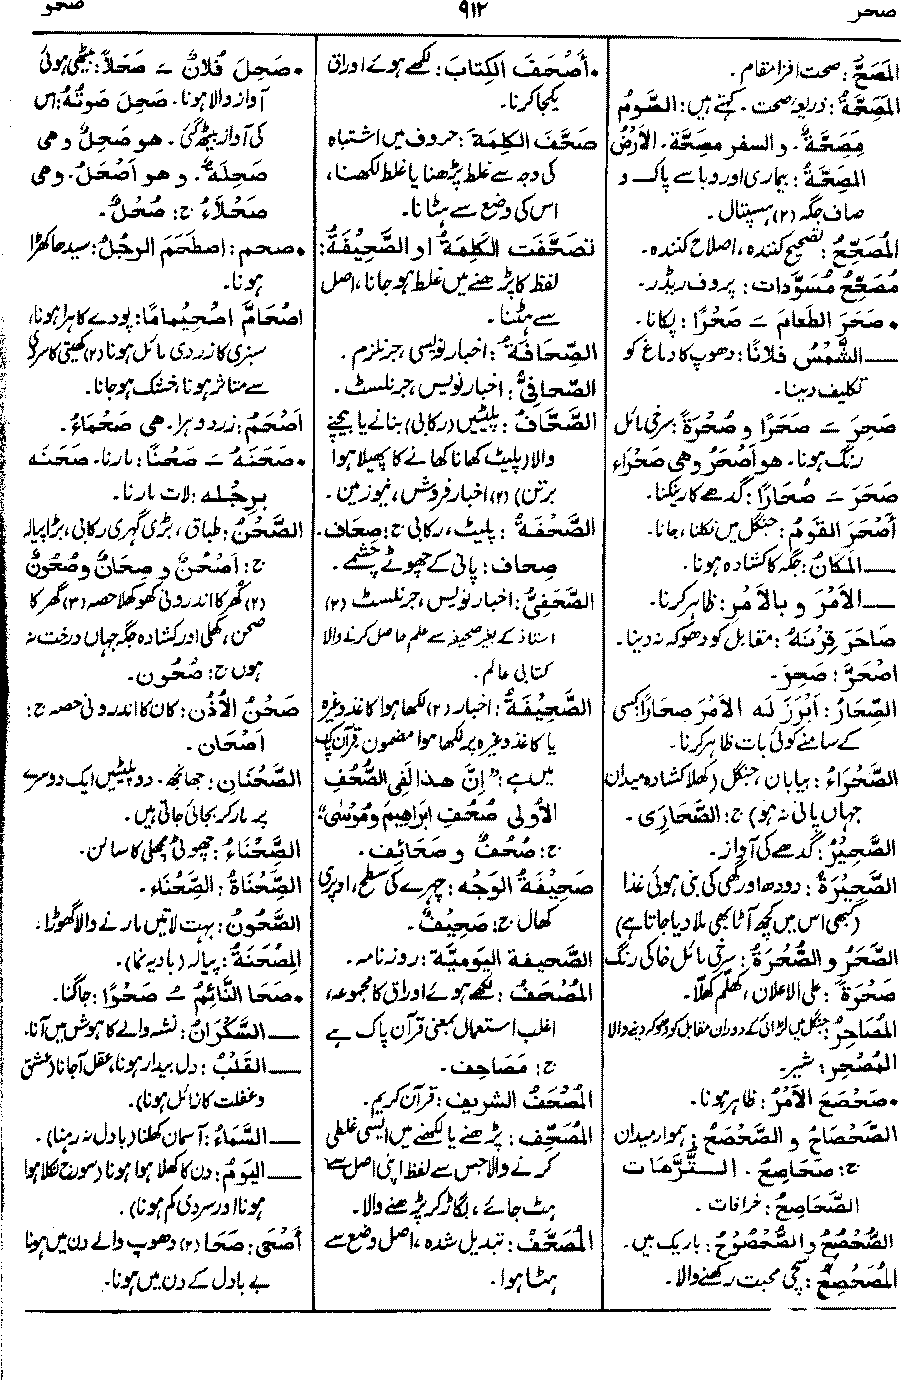 صحر
۹۱۲
صحو
المَصَحُّ: صحت افزا مقام۔
المَصَحَّةُ: ذریعۂ صحت۔ کہتے ہیں: الصَّومُ
مَصَحَّةٌ۔ و السفر مصحّة۔ الأرضُ
المَصَحَّةُ: بیماری اور وبا سے پاک و
صاف جگہ (۲) ہسپتال۔
المُصَحِّحُ: تصحیح کنندہ، اصلاح کنندہ۔
مُصَحِّحُ مُسَوَّدات: پروف ریڈر۔
• صَحَرَ الطَّعَامَ ــَـ صَحْرًا: پکانا۔
ــــ الشَّمْسُ فُلَانًا: دھوپ کا دماغ کو
تکلیف دینا۔
صَحِرَ ــَـ صَحَرًا و صُحْرَةً: سرخی مائل
رنگ ہونا۔ هو أَصْحَرُ وهي صَحْرَاء
صَحَرَ ــَـ صُحَارًا: گدھے کا رینکنا۔
أَصْحَرَ القَوْمُ: جنگل میں نکلنا، جانا۔
ــــ المَكَانُ: جگہ کا کشادہ ہونا۔
ــــ الأَمْرَ و بالأَمْرِ: ظاہر کرنا۔
صَاحَرَ قِرْنَهُ: مقابل کو دھوکہ نہ دینا۔
اصْحَرَّ: صَحِرَ۔
الصِّحَارُ: أَبْرَزَ لَه الأَمْرَ صِحَارًا: کسی
کے سامنے کوئی بات ظاہر کرنا۔
الصَّحْرَاءُ: بیابان، جنگل (کھلا کشادہ میدان
جہاں پانی نہ ہو) ج: الصَّحَارٰی۔
الصَّحِيْرُ: گدھے کی آواز۔
الصَّحِيْرَةُ: دودھ اور گھی کی بنی ہوئی غذا
(کبھی اس میں کچھ آٹا بھی ملا دیا جاتا ہے)
الصَّحَرُ و الصُّحْرَةُ: سرخی مائل خاکی رنگ
صَحْرَةً: علی الاعلان، کھلّم کھلّا۔
المُصَاحِرُ: جنگل میں لڑائی کے دوران مقابل کو دھوکہ دینے والا
المُصْحِر: شیر۔
• صَحْصَحَ الأَمْرُ: ظاہر ہونا۔
الصَّحْصَاحُ و الصَّحْصَحُ: ہموار میدان
ج: صَحَاصِحُ۔ التُّرَّهَات
الصَّحَاصِحُ: خرافات۔
الصُّحْصُحُ و الصُّحْصُوحُ: باریک بیں۔
المُصَحْصِحُ: سچی محبت رکھنے والا۔
• أَصْحَفَ الكِتَابَ: لکھے ہوئے اوراق
یکجا کرنا۔
صَحَّفَ الكَلِمَةَ: حروف میں اشتباہ
کی وجہ سے غلط پڑھنا یا غلط لکھنا،
اس کی وضع سے ہٹانا۔
تَصَحَّفَت الكَلِمَةُ او الصَّحِيفَةُ:
لفظ کا پڑھنے میں غلط ہو جانا، اصل
سے ہٹنا۔
الصِّحَافَةُ: اخبار نویسی، جرنلزم۔
الصِّحَافِيُّ: اخبار نویس، جرنلسٹ۔
الصَّحَّافُ: پلیٹیں (رکابی) بنانے یا بیچنے
والا (پلیٹ کھانا کھانے کا پھیلا ہوا
برتن) (۲) اخبار فروش، نیوزمین۔
الصَّحْفَةُ: پلیٹ، رکابی ج: صِحَاف۔
صِحاف: پانی کے چھوٹے چشمے۔
الصَّحَفِيُّ: اخبار نویس، جرنلسٹ (۲)
استاذ کے بغیر صحیفہ سے علم حاصل کرنے والا
کتابی عالم۔
الصَّحِيْفَةُ: اخبار (۲) لکھا ہوا کاغذ وغیرہ
یا کاغذ وغیرہ پر لکھا ہوا مضمون قرآن پاک
میں ہے: "إنَّ هذا لَفِي الصُّحُفِ
الأُولٰى صُحُفِ ابراهِيمَ ومُوسٰى"
ج: صُحُفٌ و صَحَائِف۔
صَحِيْفَةُ الوَجْه: چہرے کی سطح، اوپری
کھال ج: صَحِيْفٌ۔
الصَّحيفة اليَومِيَّة: روزنامہ۔
المُصْحَفُ: لکھے ہوئے اوراق کا مجموعہ،
اغلب استعمال بمعنی قرآن پاک ہے
ج: مَصَاحِف۔
المُصْحَفُ الشريف: قرآن کریم۔
المُصَحِّف: پڑھنے یا لکھنے میں ایسی غلطی
کرنے والا جس سے لفظ اپنی اصل سے
ہٹ جائے، بگاڑ کر پڑھنے والا۔
المُصَحَّفُ: تبدیل شدہ، اصل وضع سے
ہٹا ہوا۔
• صَحِلَ فُلَانٌ ــَـ صَحَلًا: بیٹھی ہوئی
آواز والا ہونا۔ صَحِلَ صَوتُهُ: اس
کی آواز بیٹھ گئی۔ هو صَحِلٌ وهي
صَحِلَةٌ۔ و هو أَصْحَلُ۔ وهي
صَحْلَاءُ ج: صُحْلٌ۔
• صحم: اصْطَحَمَ الرجُلُ: سیدھا کھڑا
ہونا۔
اصْحَامَّ اصْحِيْمامًا: پودے کا ہرا ہونا،
سبزی کا زردی مائل ہونا (۲) کھیتی کا سردی
سے متاثر ہونا، خشک ہو جانا۔
أَصْحَمُ: زرد و ہرا۔ هي صَحْمَاءُ۔
• صَحَنَهُ ــَـ صَحْنًا: مارنا۔ صَحَنَه
بِرِجْلِه: لات مارنا۔
الصَّحْنُ: طباق، بڑی گہری رکابی، بڑا پیالہ
ج: أَصْحُنٌ و صِحَانٌ وصُحُونٌ
(۲) گھر کا اندرونی کھوکھلا حصہ (۳) گھر کا
صحن، کھلی اور کشادہ جگہ جہاں درخت نہ
ہوں ج: صُحُون۔
صَحْنُ الأُذُن: کان کا اندرونی حصہ ج:
أَصْحَان۔
الصَّحْنَان: جھانجھ۔ دو پلیٹیں ایک دوسرے
پر مار کر بجائی جاتی ہیں۔
الصَّحْنَاءُ: چھوٹی مچھلی کا سالن۔
الصَّحْنَاةُ: الصَّحْنَاء۔
الصَّحُونُ: بہت لاتیں مارنے والا گھوڑا۔
المِصْحَنَةُ: پیالہ (بادیہ نما)۔
• صَحَا النَّائِمُ ــُـ صَحْوًا: جاگنا۔
ــــ السَّكْرَانُ: نشہ والے کا ہوش میں آنا۔
ــــ القَلْبُ: دل بیدار ہونا، عقل آجانا (عشق
وغفلت کا زائل ہونا)۔
ــــ السَّمَاءُ: آسمان کھلنا (بادل نہ رہنا)۔
ــــ اليَومُ: دن کا کھلا ہوا ہونا (سورج نکلا ہوا
ہونا اور سردی کم ہونا)۔
أَصْحٰى: صَحَا (۲) دھوپ والے دن میں ہونا
بے بادل کے دن میں ہونا۔